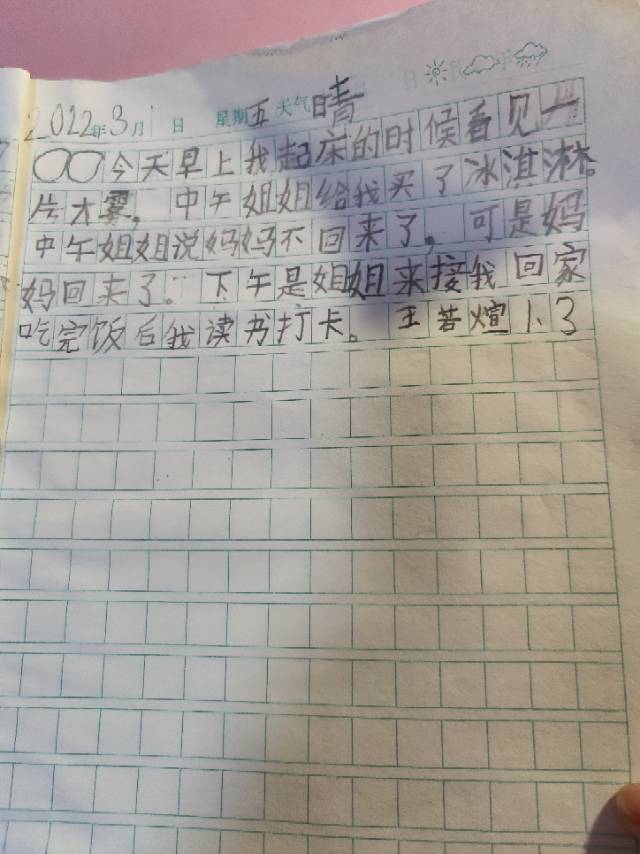 2022年3月1日 星期五 天气晴
〇〇今天早上我起床的时候看见一
片大雾,中午姐姐给我买了冰淇淋。
中午姐姐说妈妈不回来了,可是妈
妈回来了。下午是姐姐来接我回家
吃完饭后我读书打卡。 王若煊1、3